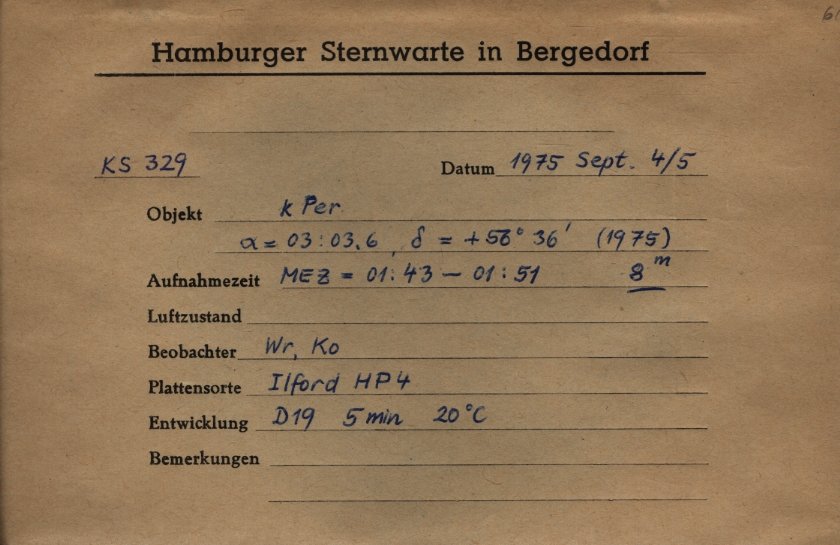 Hamburger Sternwarte in Bergedorf
KS 329 Datum 1975 Sept. 4/5
Objekt k Per.
α = 03:03.6, δ = +56° 36' (1975)
Aufnahmezeit MEZ = 01:43 — 01:51 8m
Luftzustand
Beobachter Wr, Ko
Plattensorte Ilford HP4
Entwicklung D19 5 min 20°C
Bemerkungen